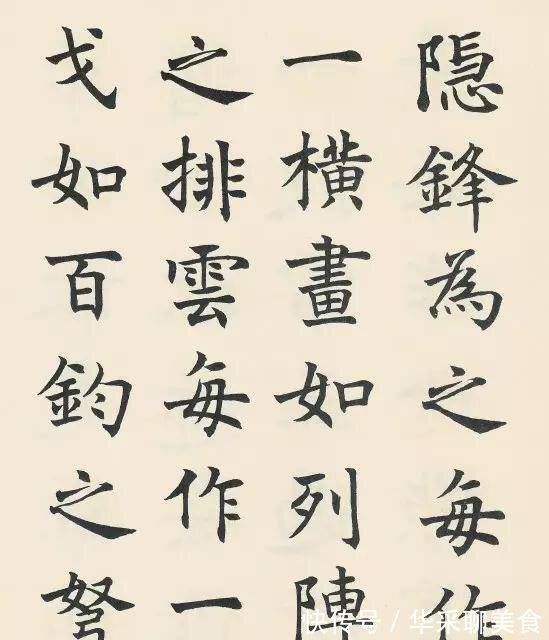 隐鋒為之每作
一橫畫如列陣
之排雲每作一
戈如百鈞之弩
快传号/华采聊美食